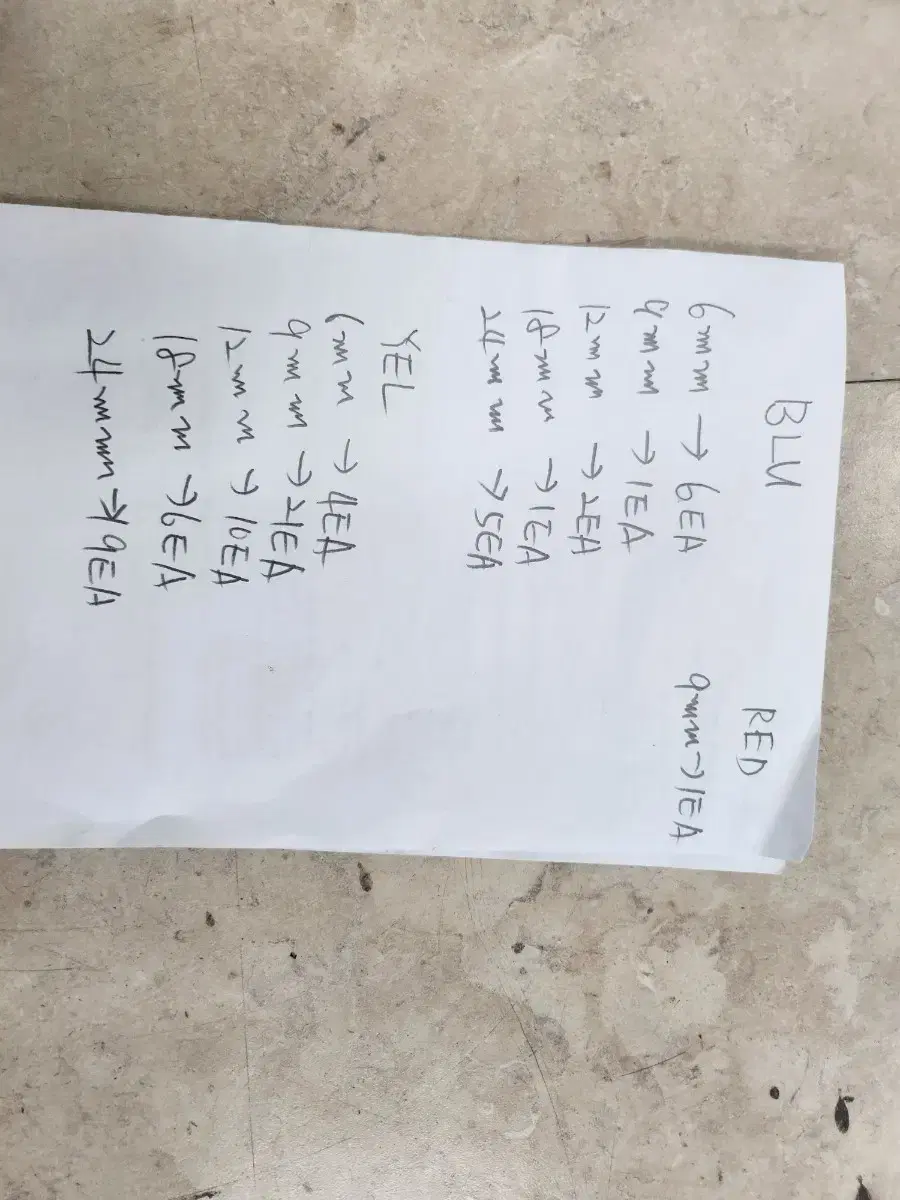 BLU
6mm → 6EA
9mm → 1EA
12mm → 2EA
18mm → 1EA
24mm → 5EA
RED
9mm → 1EA
YEL
6mm → 4EA
9mm → 21EA
12mm → 10EA
18mm → 6EA
24mm → 9EA